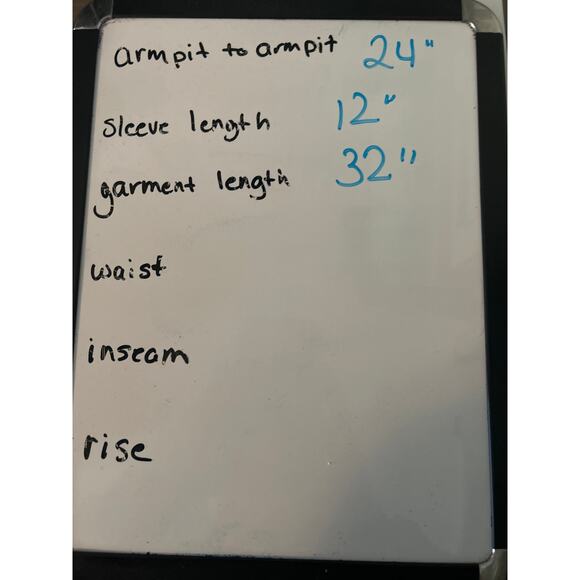 armpit to armpit 24"
sleeve length 12"
garment length 32"
waist
inseam
rise